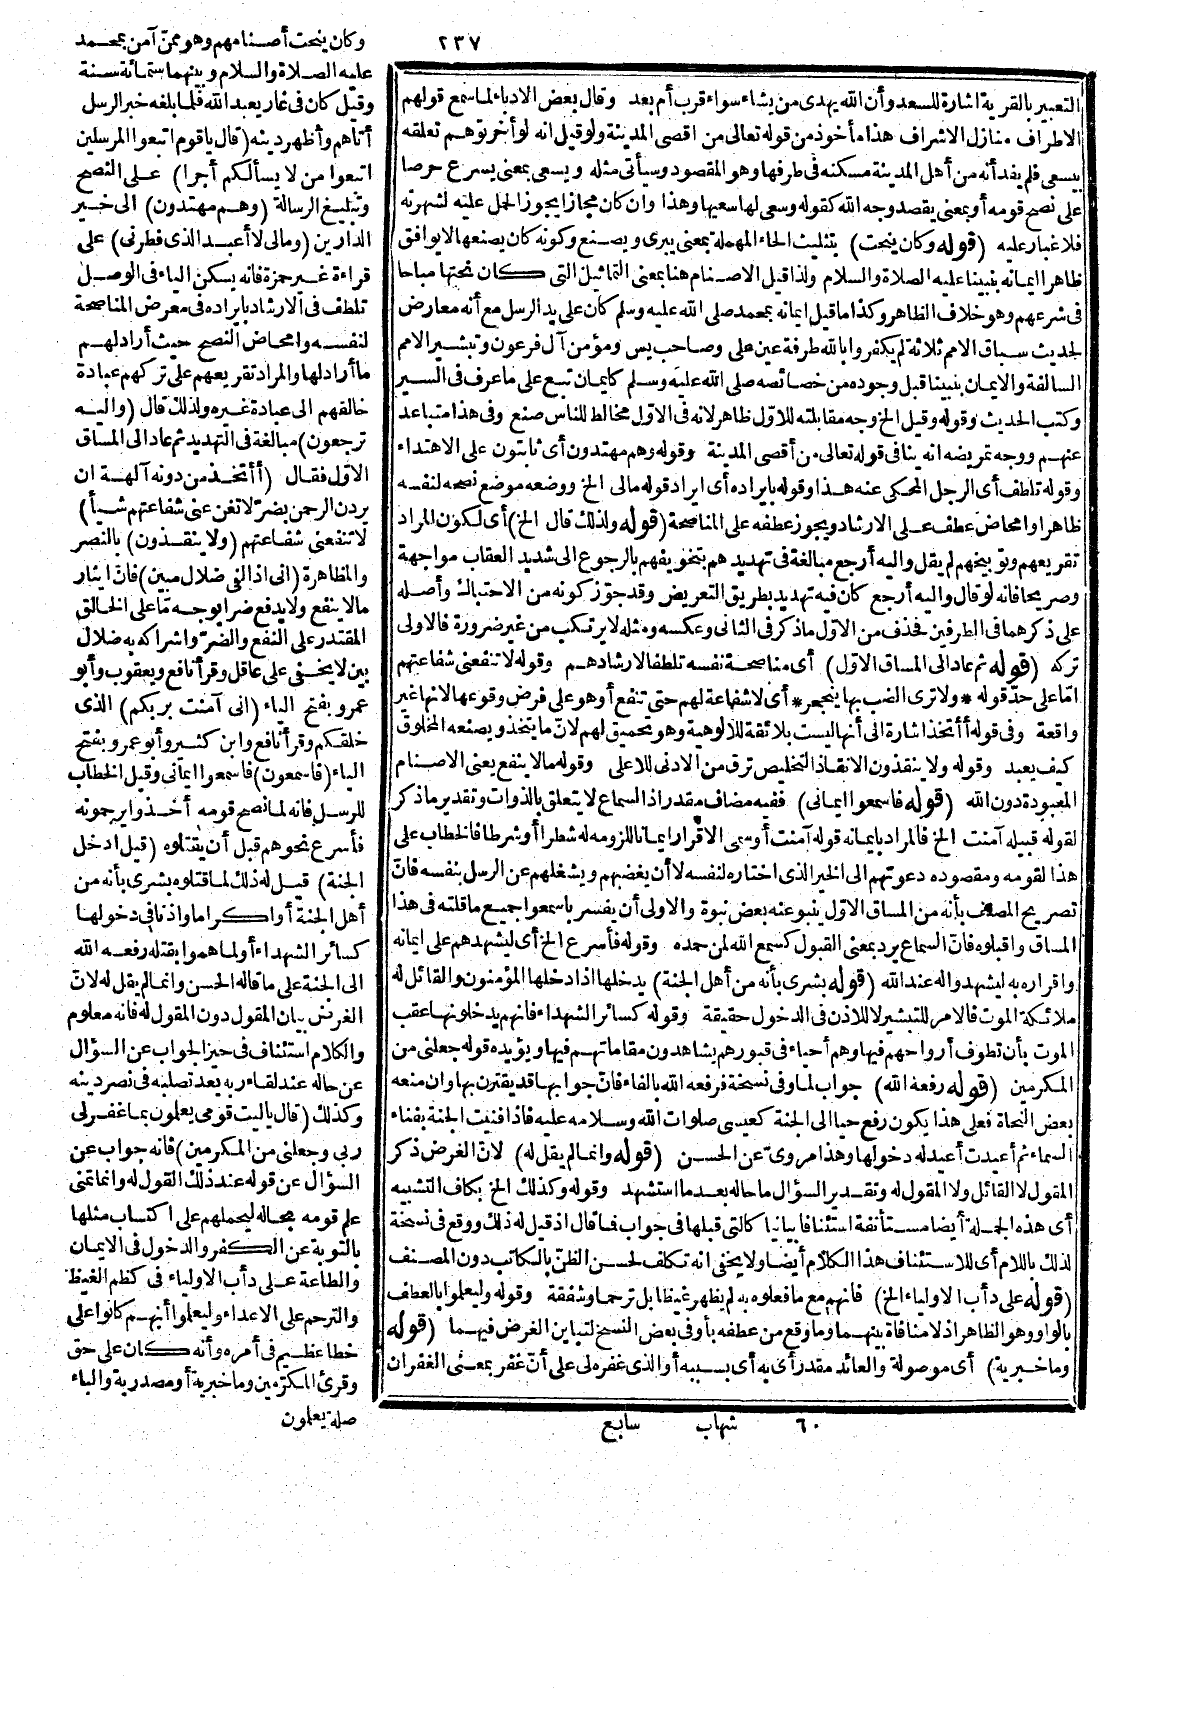 ٢٣٧
التعبير بالقرية اشارة للسعة وأن الله يهدى من يشاء سواء قرب أم بعد وقال بعض الادباء لما سمع قولهم
الاطراف منازل الاشراف هذا مأخوذ من قوله تعالى من اقصى المدينة ولو قيل انه لو أخر توهم تعلقه
بيسعى فلم يفد أنه من أهل المدينة مسكنه فى طرفها وهو المقصود وسيأتى مثله ويسعى بمعنى يسرع حرصا
على نصح قومه أو بمعنى يقصد وجه الله كقوله وسعى لها سعيها وهذا وان كان مجازا يجوز الحمل عليه لشهرته
فلا غبار عليه (قوله وكان ينحت) بتثليث الحاء المهملة بمعنى يبرى ويصنع وكونه كان يصنعها لا يوافق
ظاهر ايمانه بنبينا عليه الصلاة والسلام ولذا قيل الاصنام هنا بمعنى التماثيل التى كان نحتها مباحا
فى شرعهم وهو خلاف الظاهر وكذا ما قيل ايمانه بمحمد صلى الله عليه وسلم كان على يد الرسل مع أنه معارض
لحديث سباق الامم ثلاثة لم يكفروا بالله طرفة عين على وصاحب يس ومؤمن آل فرعون وتبشير الامم
السالفة والايمان بنبينا قبل وجوده من خصائصه صلى الله عليه وسلم كايمان تبع على ما عرف فى السير
وكتب الحديث وقوله وقيل الخ وجه مقابلته للاوّل ظاهر لانه فى الاوّل مخالط للناس صنع وفى هذا متباعد
عنهم ووجه تمريضه انه ينافى قوله تعالى من أقصى المدينة وقوله وهم مهتدون أى ثابتون على الاهتداء
وقوله تلطف أى الرجل المحكى عنه هذا وقوله بايراده أى ايراد قوله مالى الخ ووضعه موضع نصحه لنفسه
ظاهر او امحاض عطف على الارشاد ويجوز عطفه على المناصحة (قوله ولذلك قال الخ) أى لكون المراد
تقريعهم وتوبيخهم لم يقل واليه أرجع مبالغة فى تهديدهم بتخويفهم بالرجوع الى شديد العقاب مواجهة
وصريحا فانه لو قال واليه أرجع كان فيه تهديد بطريق التعريض وقد جوّز كونه من الاحتباك وأصله
على ذكرهما فى الطرفين فحذف من الاوّل ما ذكر فى الثانى وعكسه ومثله لا يرتكب من غير ضرورة فالاولى
تركه (قوله ثم عاد الى المساق الاوّل) أى مناصحة نفسه تلطفا لارشادهم وقوله لا تنفعنى شفاعتهم
امّا على حدّ قوله * ولا ترى الضب بها ينجحر * أى لا شفاعة لهم حتى تنفع أو هو على فرض وقوعها لانها غير
واقعة وفى قوله أأتخذ اشارة الى أنها ليست بلائقة للالوهية وهو تحميق لهم لانّ ما يتخذ ويصنعه المخلوق
كيف يعبد وقوله ولا ينقذون الانقاذ التخليص ترق من الادنى للاعلى وقوله مالا ينفع يعنى الاصنام
المعبودة دون الله (قوله فاسمعوا ايمانى) ففيه مضاف مقدر اذ السماع لا يتعلق بالذوات وتقدير ما ذكر
لقوله قبيله آمنت الخ فالمراد بايمانه قوله آمنت أو سمى الاقرار ايمانا للزومه له شطرا أو شرطا فالخطاب على
هذا لقومه ومقصوده دعوتهم الى الخير الذى اختاره لنفسه لا أن يغضبهم ويشغلهم عن الرسل بنفسه فانّ
تصريح المصنف بأنه من المساق الاوّل ينبو عنه بعض نبوة والاولى أن يفسر باسمعوا جميع ما قلته فى هذا
المساق واقبلوه فانّ السماع يرد بمعنى القبول كسمع الله لمن حمده وقوله فأسرع الخ أى ليشهدهم على ايمانه
واقراره به ليشهدوا له عند الله (قوله بشرى بأنه من أهل الجنة) يدخلها اذا دخلها المؤمنون والقائل له
ملائكة الموت فالامر للتبشير لا للاذن فى الدخول حقيقة وقوله كسائر الشهداء فانهم يدخلونها عقب
الموت بأن تطوف أرواحهم فيها وهم أحياء فى قبورهم يشاهدون مقاماتهم فيها ويؤيده قوله جعلنى من
المكرمين (قوله رفعه الله) جواب لما وفى نسخة فرفعه الله بالفاء فانّ جوابها قد يقترن بها وان منعه
بعض النحاة فعلى هذا يكون رفع حيا الى الجنة كعيسى صلوات الله وسلامه عليه فاذا فنيت الجنة بفناء
السماء ثم أعيدت أعيد له دخولها وهذا مروىّ عن الحسن (قوله وانما لم يقل له) لانّ الغرض ذكر
المقول لا القائل ولا المقول له وتقدير السؤال ما حاله بعد ما استشهد وقوله وكذلك الخ بكاف التشبيه
أى هذه الجملة أيضا مستأنفة استئنافا بيانيا كالتى قبلها فى جواب فما قال اذ قيل له ذلك ووقع فى نسخة
لذلك باللام أى للاستئناف هذا الكلام أيضا ولا يخفى انه تكلف لحسن الظنّ بالكاتب دون المصنف
(قوله على دأب الاولياء الخ) فانهم مع ما فعلوه به لم يظهر غيظا بل ترحما وشفقة وقوله وليعلموا بالعطف
بالواو وهو الظاهر اذ لا منافاة بينهما وما وقع من عطفه بأو فى بعض النسخ لتباين الغرض فيهما (قوله
وما خبرية) أى موصولة والعائد مقدر أى به أى بسببه أو الذى غفره لى على أنّ غفر بمعنى الغفران
٦٠ شهاب سابع
وكان ينحت أصنامهم وهو ممنّ آمن بمحمد
عليه الصلاة والسلام وبينهما ستمائة سنة
وقيل كان فى غار يعبد الله فلما بلغه خبر الرسل
أتاهم وأظهر دينه (قال ياقوم اتبعوا المرسلين
اتبعوا من لا يسألكم أجرا) على النصح
وتبليغ الرسالة (وهم مهتدون) الى خير
الدارين (ومالى لا أعبد الذى فطرنى) على
قراءة غير حمزة فانه يسكن الياء فى الوصل
تلطف فى الارشاد بايراده فى معرض المناصحة
لنفسه وامحاض النصح حيث أراد لهم
ما أراد لها والمراد تقريعهم على تركهم عبادة
خالقهم الى عبادة غيره ولذلك قال (واليه
ترجعون) مبالغة فى التهديد ثم عاد الى المساق
الاوّل فقال (أأتخذ من دونه آلهة ان
يردن الرحمن بضرّ لا تغن عنى شفاعتهم شيأ)
لا تنفعنى شفاعتهم (ولا ينقذون) بالنصر
والمظاهرة (انى اذا لفى ضلال مبين) فانّ ايثار
مالا ينفع ولا يدفع ضرا بوجه مّا على الخالق
المقتدر على النفع والضرّ واشراكه به ضلال
بين لا يخفى على عاقل وقرأ نافع ويعقوب وأبو
عمرو بفتح الياء (انى آمنت بربكم) الذى
خلقكم وقرأ نافع وابن كثير وأبو عمرو بفتح
الياء (فاسمعون) فاسمعوا ايمانى وقيل الخطاب
للرسل فانه لما نصح قومه أخذوا يرجمونه
فأسرع نحوهم قبل أن يقتلوه (قيل ادخل
الجنة) قيل له ذلك لما قتلوه بشرى بأنه من
أهل الجنة أو اكراما واذنا فى دخولها
كسائر الشهداء أو لما هموا بقتله رفعه الله
الى الجنة على ما قاله الحسن وانما لم يقل له لانّ
الغرض بيان المقول دون المقول له فانه معلوم
والكلام استئناف فى حيز الجواب عن السؤال
عن حاله عند لقاء ربه بعد تصلبه فى نصر دينه
وكذلك (قال ياليت قومى يعلمون بما غفر لى
ربى وجعلنى من المكرمين) فانه جواب عن
السؤال عن قوله عند ذلك القول له وانما تمنى
علم قومه بحاله ليحملهم على اكتساب مثلها
بالتوبة عن الكفر والدخول فى الايمان
والطاعة على دأب الاولياء فى كظم الغيظ
والترحم على الاعداء وليعلموا أنهم كانوا على
خطا عظيم فى أمره وأنه كان على حق
وقرئ المكرّمين وما خبرية أو مصدرية والباء
صلة يعلمون